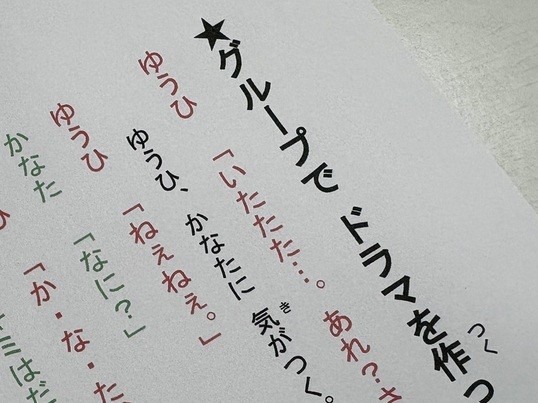 ★グループで ドラマを作っ
つく
ゆうひ 「いたたた…。 あれ?
ゆうひ、かなたに 気がつく。
き
ゆうひ 「ねぇねぇ。」
かなた 「なに?」
「か・な・た
ミはだ